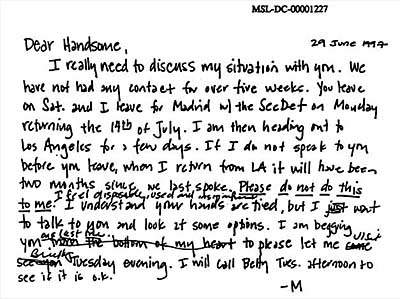 MSL-DC-00001227
Dear Handsome, 29 June 1997
I really need to discuss my situation with you. We
have not had any contact for over five weeks. You leave
on Sat. and I leave for Madrid w/ the SecDef on Monday
returning the 14th of July. I am then heading out to
Los Angeles for a few days. If I do not speak to you
before you leave, when I return from LA it will have been
two months since we last spoke. Please do not do this
I feel disposable, used and insignificant.
to me. I understand your hands are tied, but I just want
to talk to you and look at some options. I am begging
you from the bottom of my heart to please let me come visit
one last time
see you briefly Tuesday evening. I will call Betty Tues. afternoon to
see if it is o.k.
-M